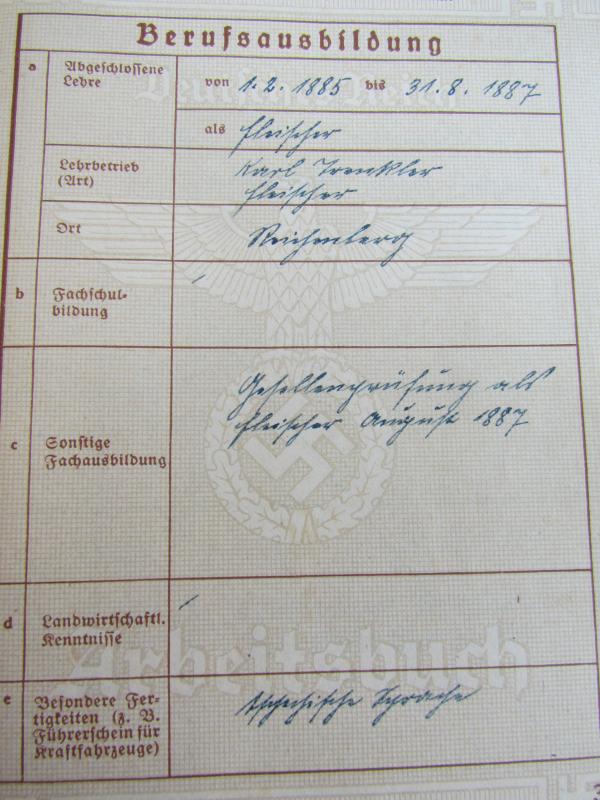 Berufsausbildung
a
Abgeschlossene
Lehre
von 1. 2. 1885 bis 31. 8. 1887
als Fleischer
Lehrbetrieb
(Art)
Karl Trenkler
Fleischer
Ort
Reichenberg
b
Fachschul-
bildung
c
Sonstige
Fachausbildung
Gesellenprüfung als
Fleischer August 1887
d
Landwirtschaftl.
Kenntnisse
e
Besondere Fer-
tigkeiten (z. B.
Führerschein für
Kraftfahrzeuge)
tschechische Sprache
Deutsches Reich
Arbeitsbuch
3